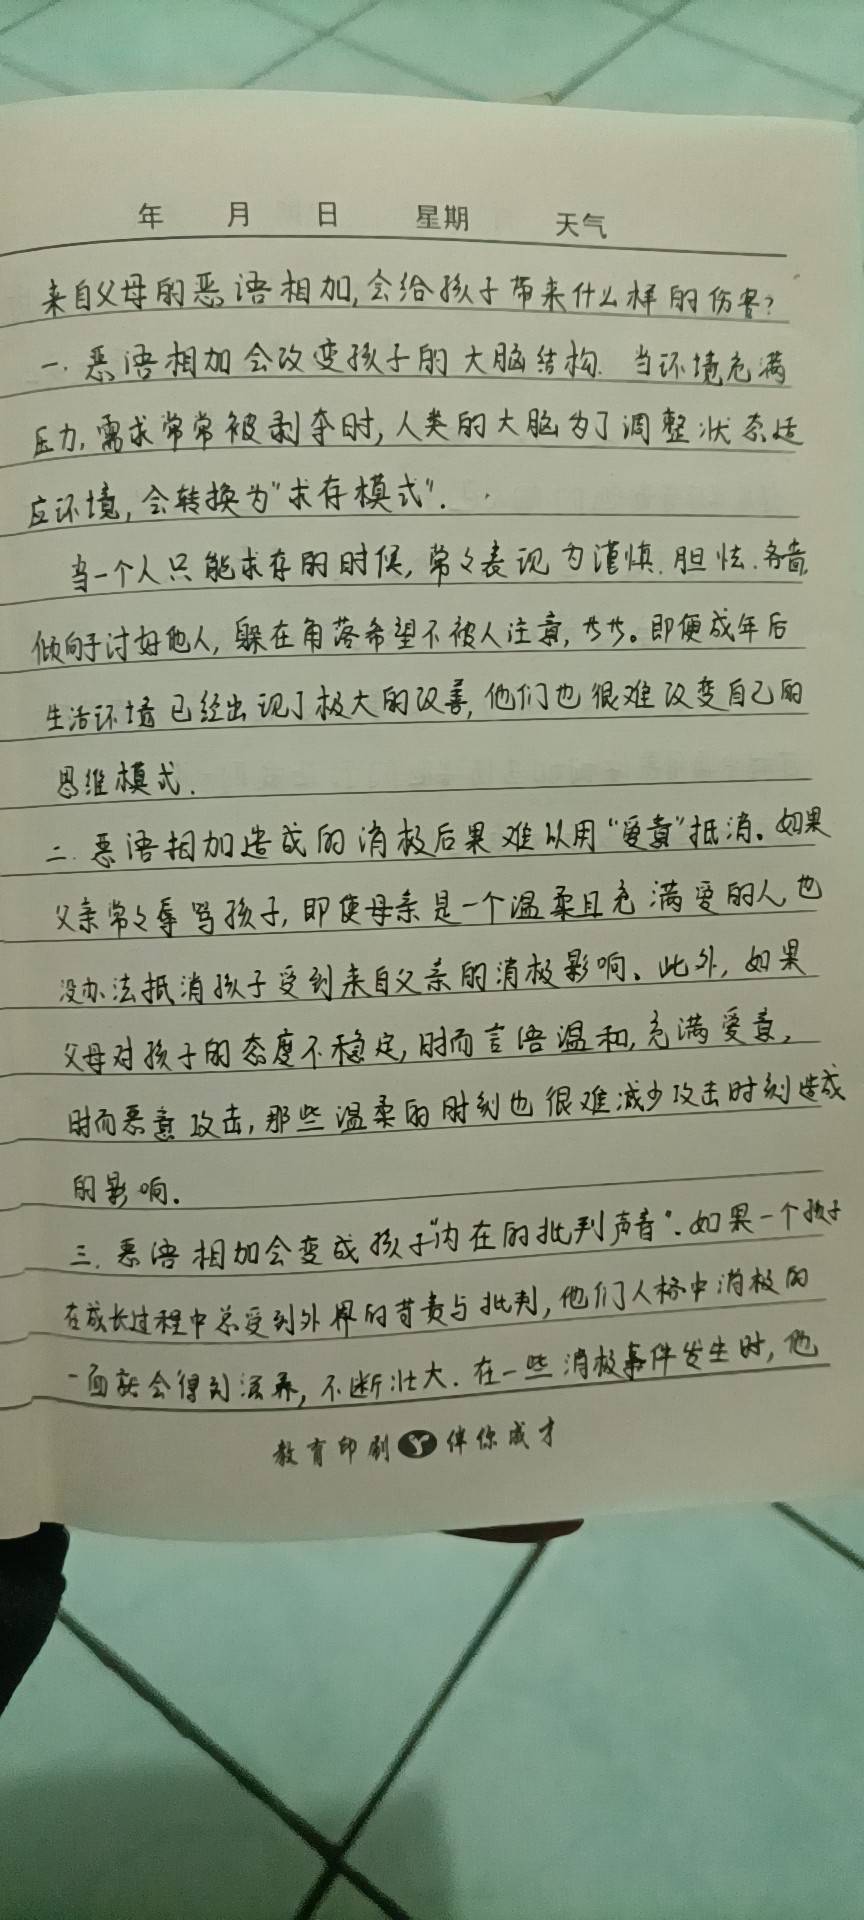 年 月 日 星期 天气
来自父母的恶语相加,会给孩子带来什么样的伤害?
一.恶语相加会改变孩子的大脑结构.当环境充满
压力,需求常常被剥夺时,人类的大脑为了调整状态适
应环境,会转换为"求存模式".
当一个人只能求存的时候,常々表现为谨慎.胆怯.吝啬,
倾向于讨好他人,躲在角落希望不被人注意,等等。即便成年后
生活环境已经出现了极大的改善,他们也很难改变自己的
思维模式.
二.恶语相加造成的消极后果难以用"爱意"抵消。如果
父亲常々辱骂孩子,即使母亲是一个温柔且充满爱的人也
没办法抵消孩子受到来自父亲的消极影响、此外,如果
父母对孩子的态度不稳定,时而言语温和,充满爱意,
时而恶意攻击,那些温柔的时刻也很难减少攻击时刻造成
的影响.
三.恶语相加会变成孩子"内在的批判声音".如果一个孩子
在成长过程中总受到外界的苛责与批判,他们人格中消极的
一面就会得到滋养,不断壮大.在一些消极事件发生时,他
教育印刷 伴你成才